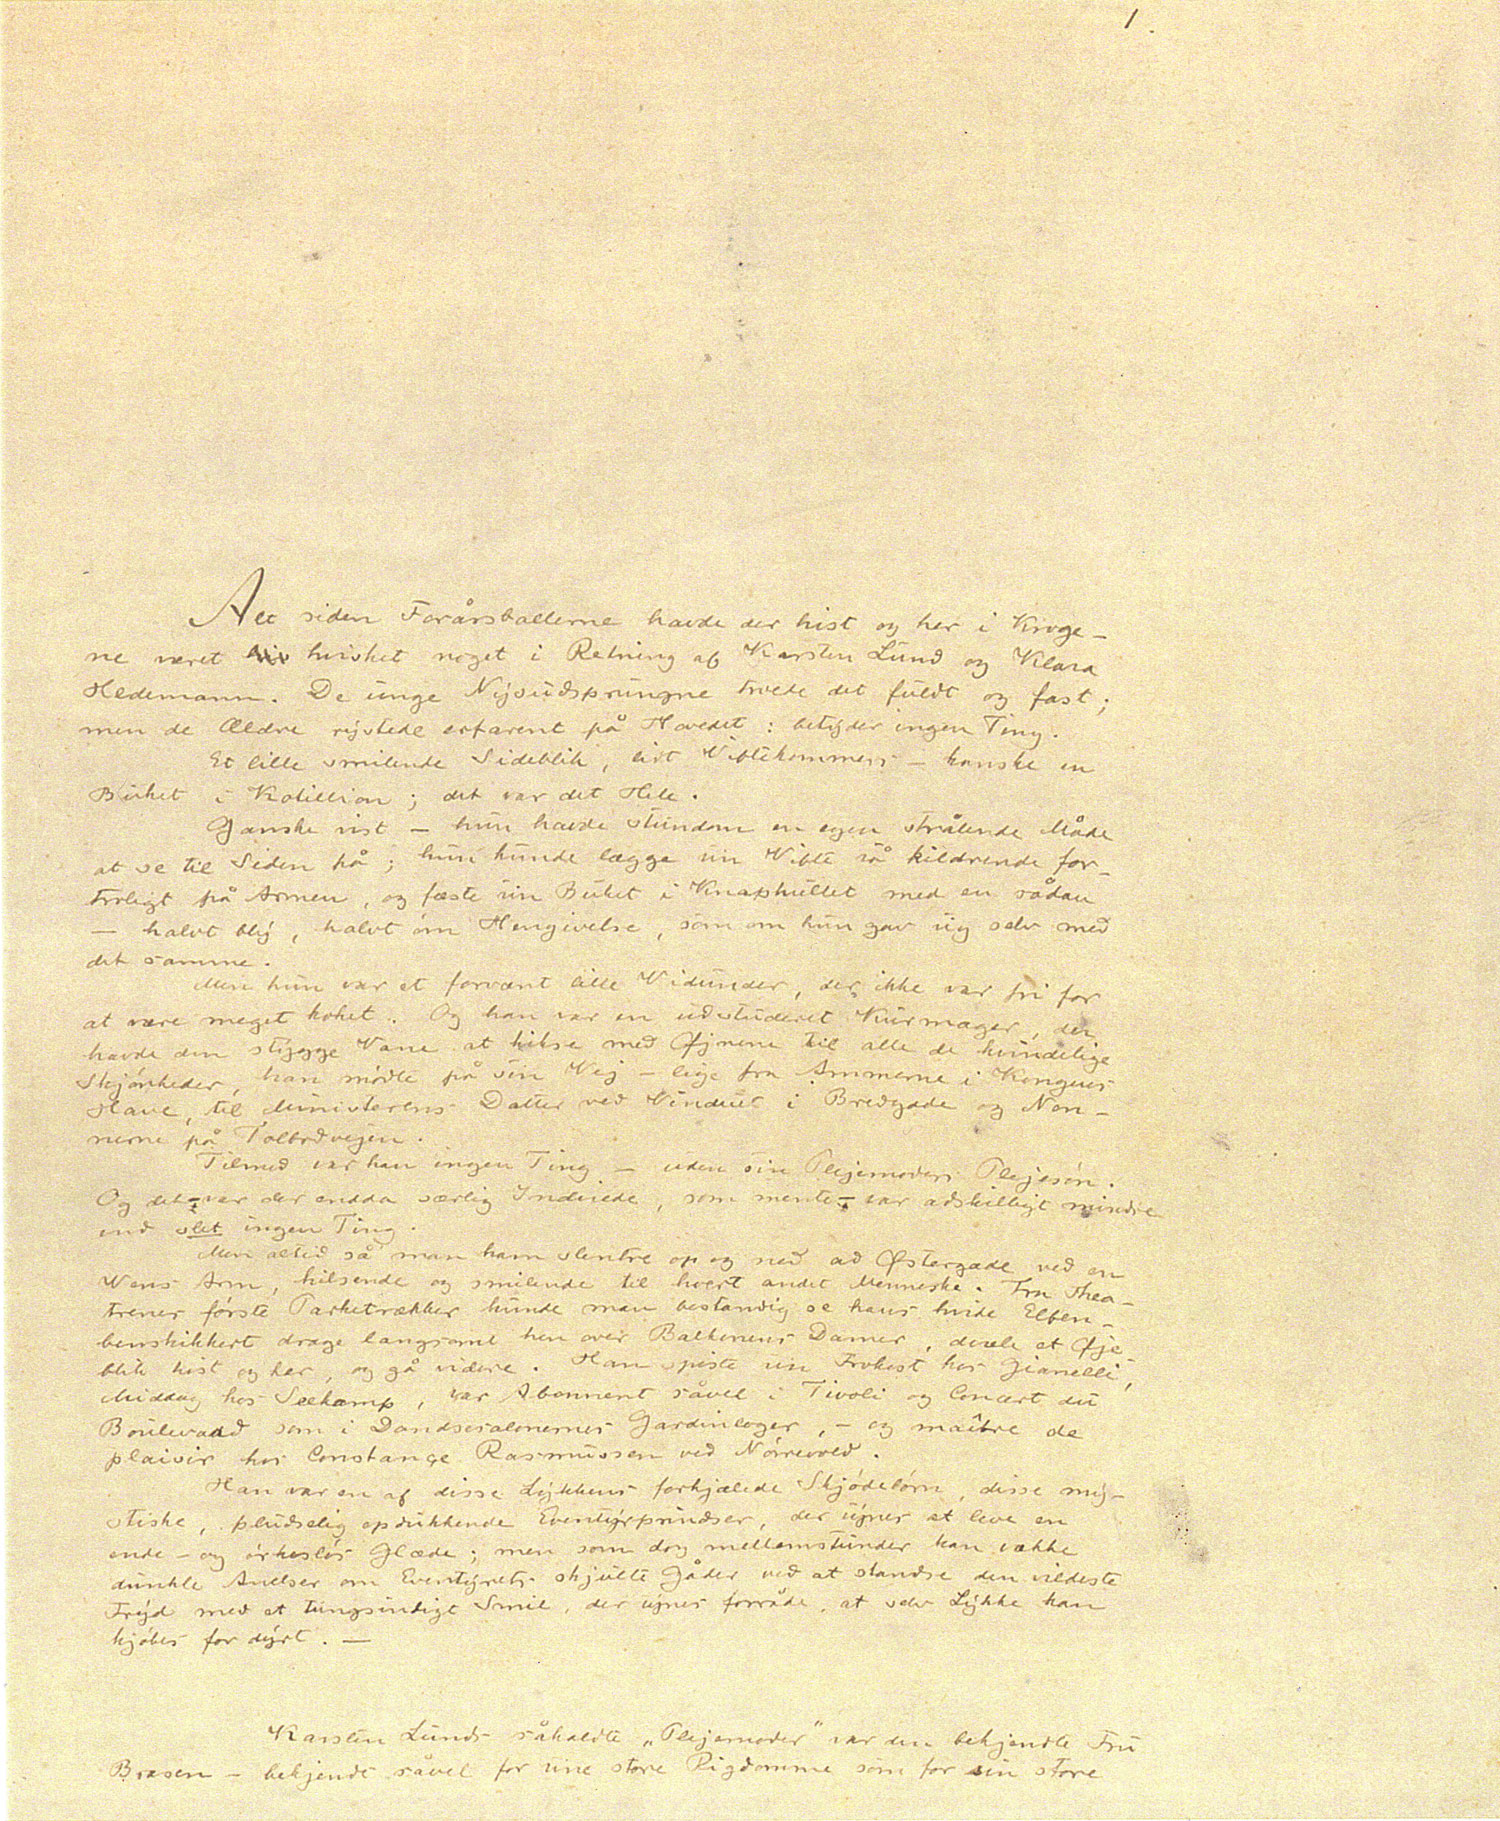 1.
Alt siden Forårsballerne havde der hist og her i Kroge-
ne været hvisket noget i Retning af Karsten Lund og Klara
Hedemann. De unge Nysudsprungne troede det fuldt og fast;
men de Ældre rystede erfarent på Hovedet: betyder ingen Ting.
Et lille smilende Sideblik, lidt Viftekommers – kanske en
Buket i Kotillion; det var det Hele.
Ganske vist – hun havde stundom en egen strålende Måde
at se til Siden på; hun kunde lægge sin Vifte så kildrende for-
troligt på Armen, og fæste sin Buket i Knaphullet med en sådan
– halvt bly, halvt øm Hengivelse, som om hun gav sig selv med
det samme.
Men hun var et forvænt lille Vidunder, der ikke var fri for
at være meget koket. Og han var en udstuderet Kurmager, der
havde den stygge Vane at hilse med Øjnene til alle de kvindelige
Skjønheder, han mødte på sin Vej – lige fra Ammerne i Kongens
Have, til Ministerens Datter ved Vinduet i Bredgade og Non-
nerne på Toldbodvejen.
Tilmed var han ingen Ting – uden sin Plejemoders Plejesøn.
Og det – var der endda særlig Indviede, som mente – var adskilligt mindre
end slet ingen Ting.
Men altid så man ham slentre op og ned ad Østergade ved en
Vens Arm, hilsende og smilende til hvert andet Menneske. Fra Thea-
trenes første Parketrækker kunde man bestandig se hans hvide Elfen-
benskikkert drage langsomt hen over Balkonens Damer, dvæle et Øje-
blik hist og her, og gå videre. Han spiste sin Frokost hos Gianelli,
Middag hos Seekamp, var Abonnent såvel i Tivoli og Concert du
Boulevard som i Dandsesalonernes Gardinloger, – og maître de
plaisir hos Constance Rasmussen ved Nørrevold.
Han var en af disse Lykkens forkjælede Skjødebørn, disse my-
stiske, pludselig opdukkende Eventyrprindser, der synes at leve en
ende- og ørkesløs Glæde; men som dog mellemstunder kan vække
dunkle Anelser om Eventyrets skjulte Gåder ved at standse den vildeste
Fryd med et tungsindigt Smil, der synes forråde, at selv Lykke kan
kjøbes for dyrt. –
Karsten Lunds såkaldte „Plejemoder" var den bekjendte Fru
Brasen – bekjendt såvel for sine store Rigdomme som for sin store